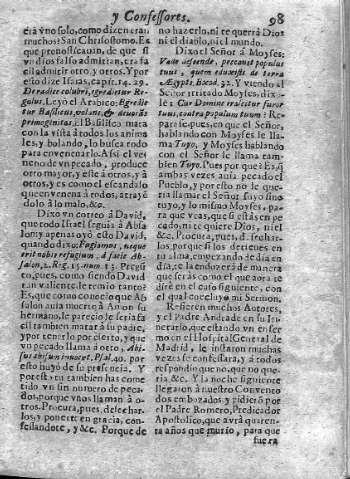 y Confessores. 98
era vno solo, como dizen eran
muchos? San Chrisostomo. Es
que pronosticacion, de que si
vn dios falso admitian, era fa-
cil admitir otro, y otros. Y por
esso dize Isaias, cap. 14. n. 29.
De radice colubri, egredietur Re-
gulus. Leyò el Arabico: Egredie-
tur Basiliscus, volans, & deuorãs
primogenitas. El Basilisco mata
con la vista à todos los anima-
les, y bolando, lo busca todo
para envenenarlo. Assi el ve-
neno de vn pecado, produce
otro mayor, y este à otros, y à
otros, y es como el escandalo
que envenena à todos, atrayẽ
dolo à lo malo, &c.
Dixo vn correo à David,
que todo Israel seguia à Absa-
lom, y apenas oyò esto David,
quando dixo: Fugiamus, neque
erit nobis refugium à facie Ab-
salon, 2. Reg. 15. num. 15. Pregũ
to, pues, como siendo David
tan valiente, le temio tanto?
Es, que como conociò que Ab
salon avia muerto à Amon su
hermano, le pareciò le seria fa
cil tambien matar à su padre,
y por temerlo por cierto, y que
vn pecado llama à otro, Abis-
sus abissum inuocat, Psal. 40. por
esto huyò de su presencia. Y
por esta tambien has come
tido vn sin numero de peca-
dos, porque vnos llaman à o-
tros. Procura, pues, desechar-
los, y ponerte en gracia, con-
fessandote, y &c. Porque de
no hazerlo, ni te querrà Dios
ni el diablo, ni el mundo.
Dixo el Señor à Moyses:
Vade descende, peccauit populus
tuus, quem eduxisti de terra
Ægypti, Exod. 32. Y viendo al
Señor irritado Moyses, dixo-
le: Cur Domine irascitur furor
tuus, contra populum tuum? Re-
parase, pues, en que el Señor,
hablando con Moyses le lla-
ma Tuyo, y Moyses hablando
con el Señor le llama tam-
bien Tuyo. Pues por què? Es, si
ambas vezes avia pecado el
Pueblo, y por esto no le que-
ria llamar el Señor suyo sino
tuyo, y lo mismo Moyses, pa-
ra que veas, que si estàs en pe-
cado, ni te quiere Dios, ni el
&c. Procura, pues, desechar-
los, porque si los detienes en
tu alma, cuyezando de dia en
dia, se la enduzerà de manera
que seràs como el que aora te
dirè en el caso siguiente, con
el qual concluyo mi Sermon.
Refieren muchos Autores,
y el Padre Andrade en su Iti-
nerario, que estando vn enfer
mo en el Hospital General de
Madrid, le instaron muchas
vezes se confessara, y à todos
respondiò que no, que no que-
ria &c. Y la noche siguiente
llegaron à nuestro Convento
dos embozados, y pidieron por
el Padre Romero, Predicador
Apostolico, que avrà quaren-
ta años que muriò, para que
fuera